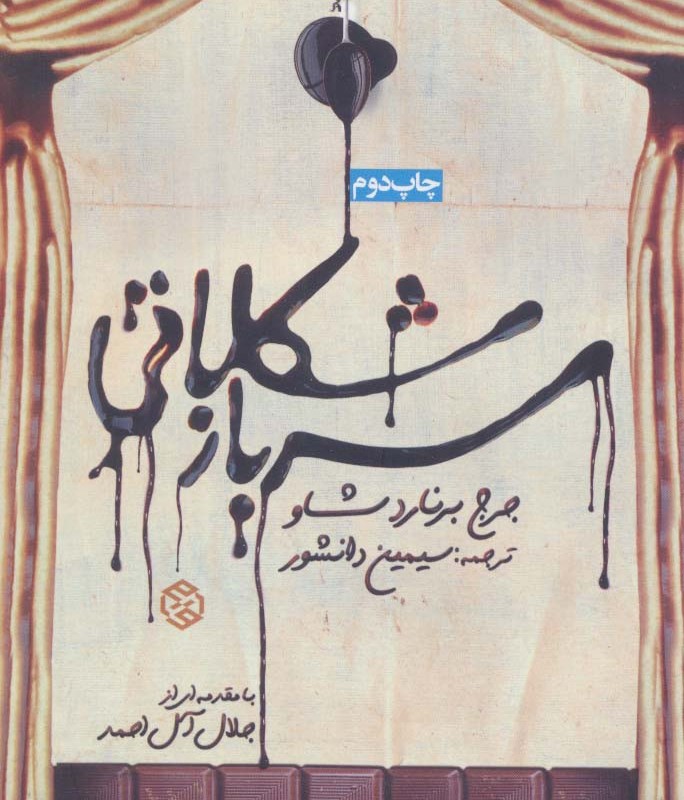 چاپ دوم
سرباز شکلاتی
جرج برنارد شاو
ترجمه: سیمین دانشور
با مقدمه‌ای از
جلال آل احمد